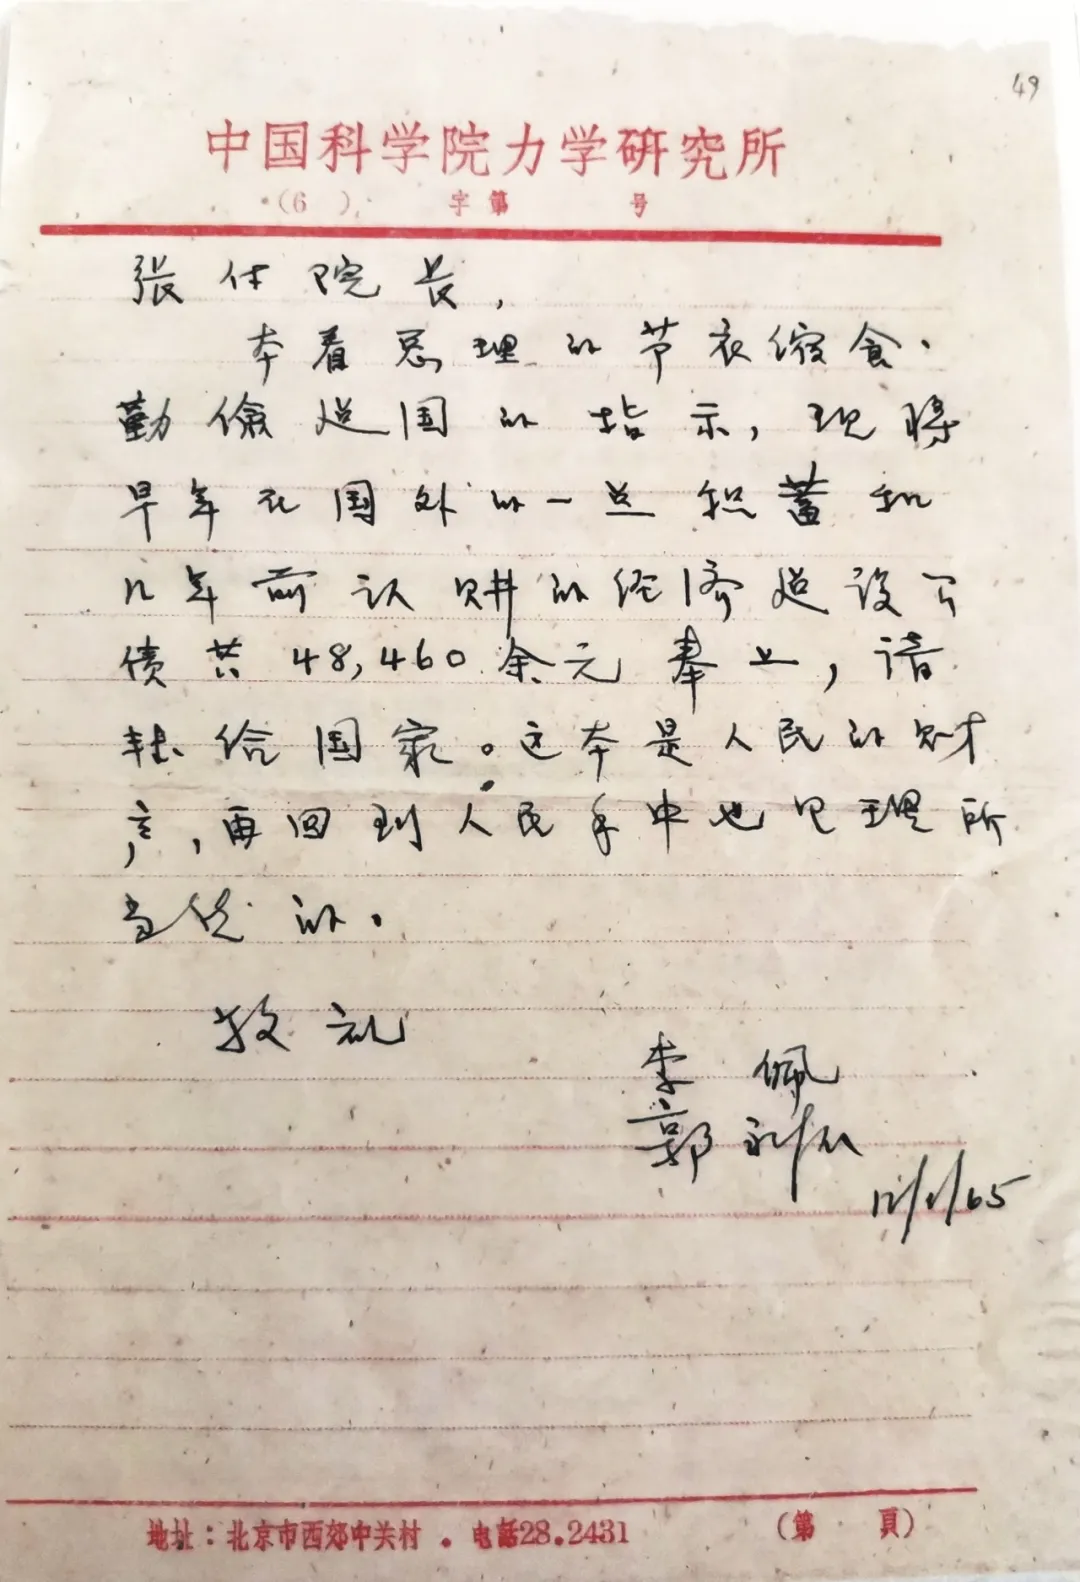 49
中国科学院力学研究所
(6 ) 字第 号
张付院长,
本着总理的节衣缩食、
勤俭建国的指示,现将
早年在国外的一点积蓄和
几年前认购的经济建设公
债共48,460余元奉上,请
转给国家。这本是人民的财
产,再回到人民手中也是理所
当然的。
敬礼
李佩
郭永怀
12/1/65
地址:北京市西郊中关村.电話28.2431 (第 頁)